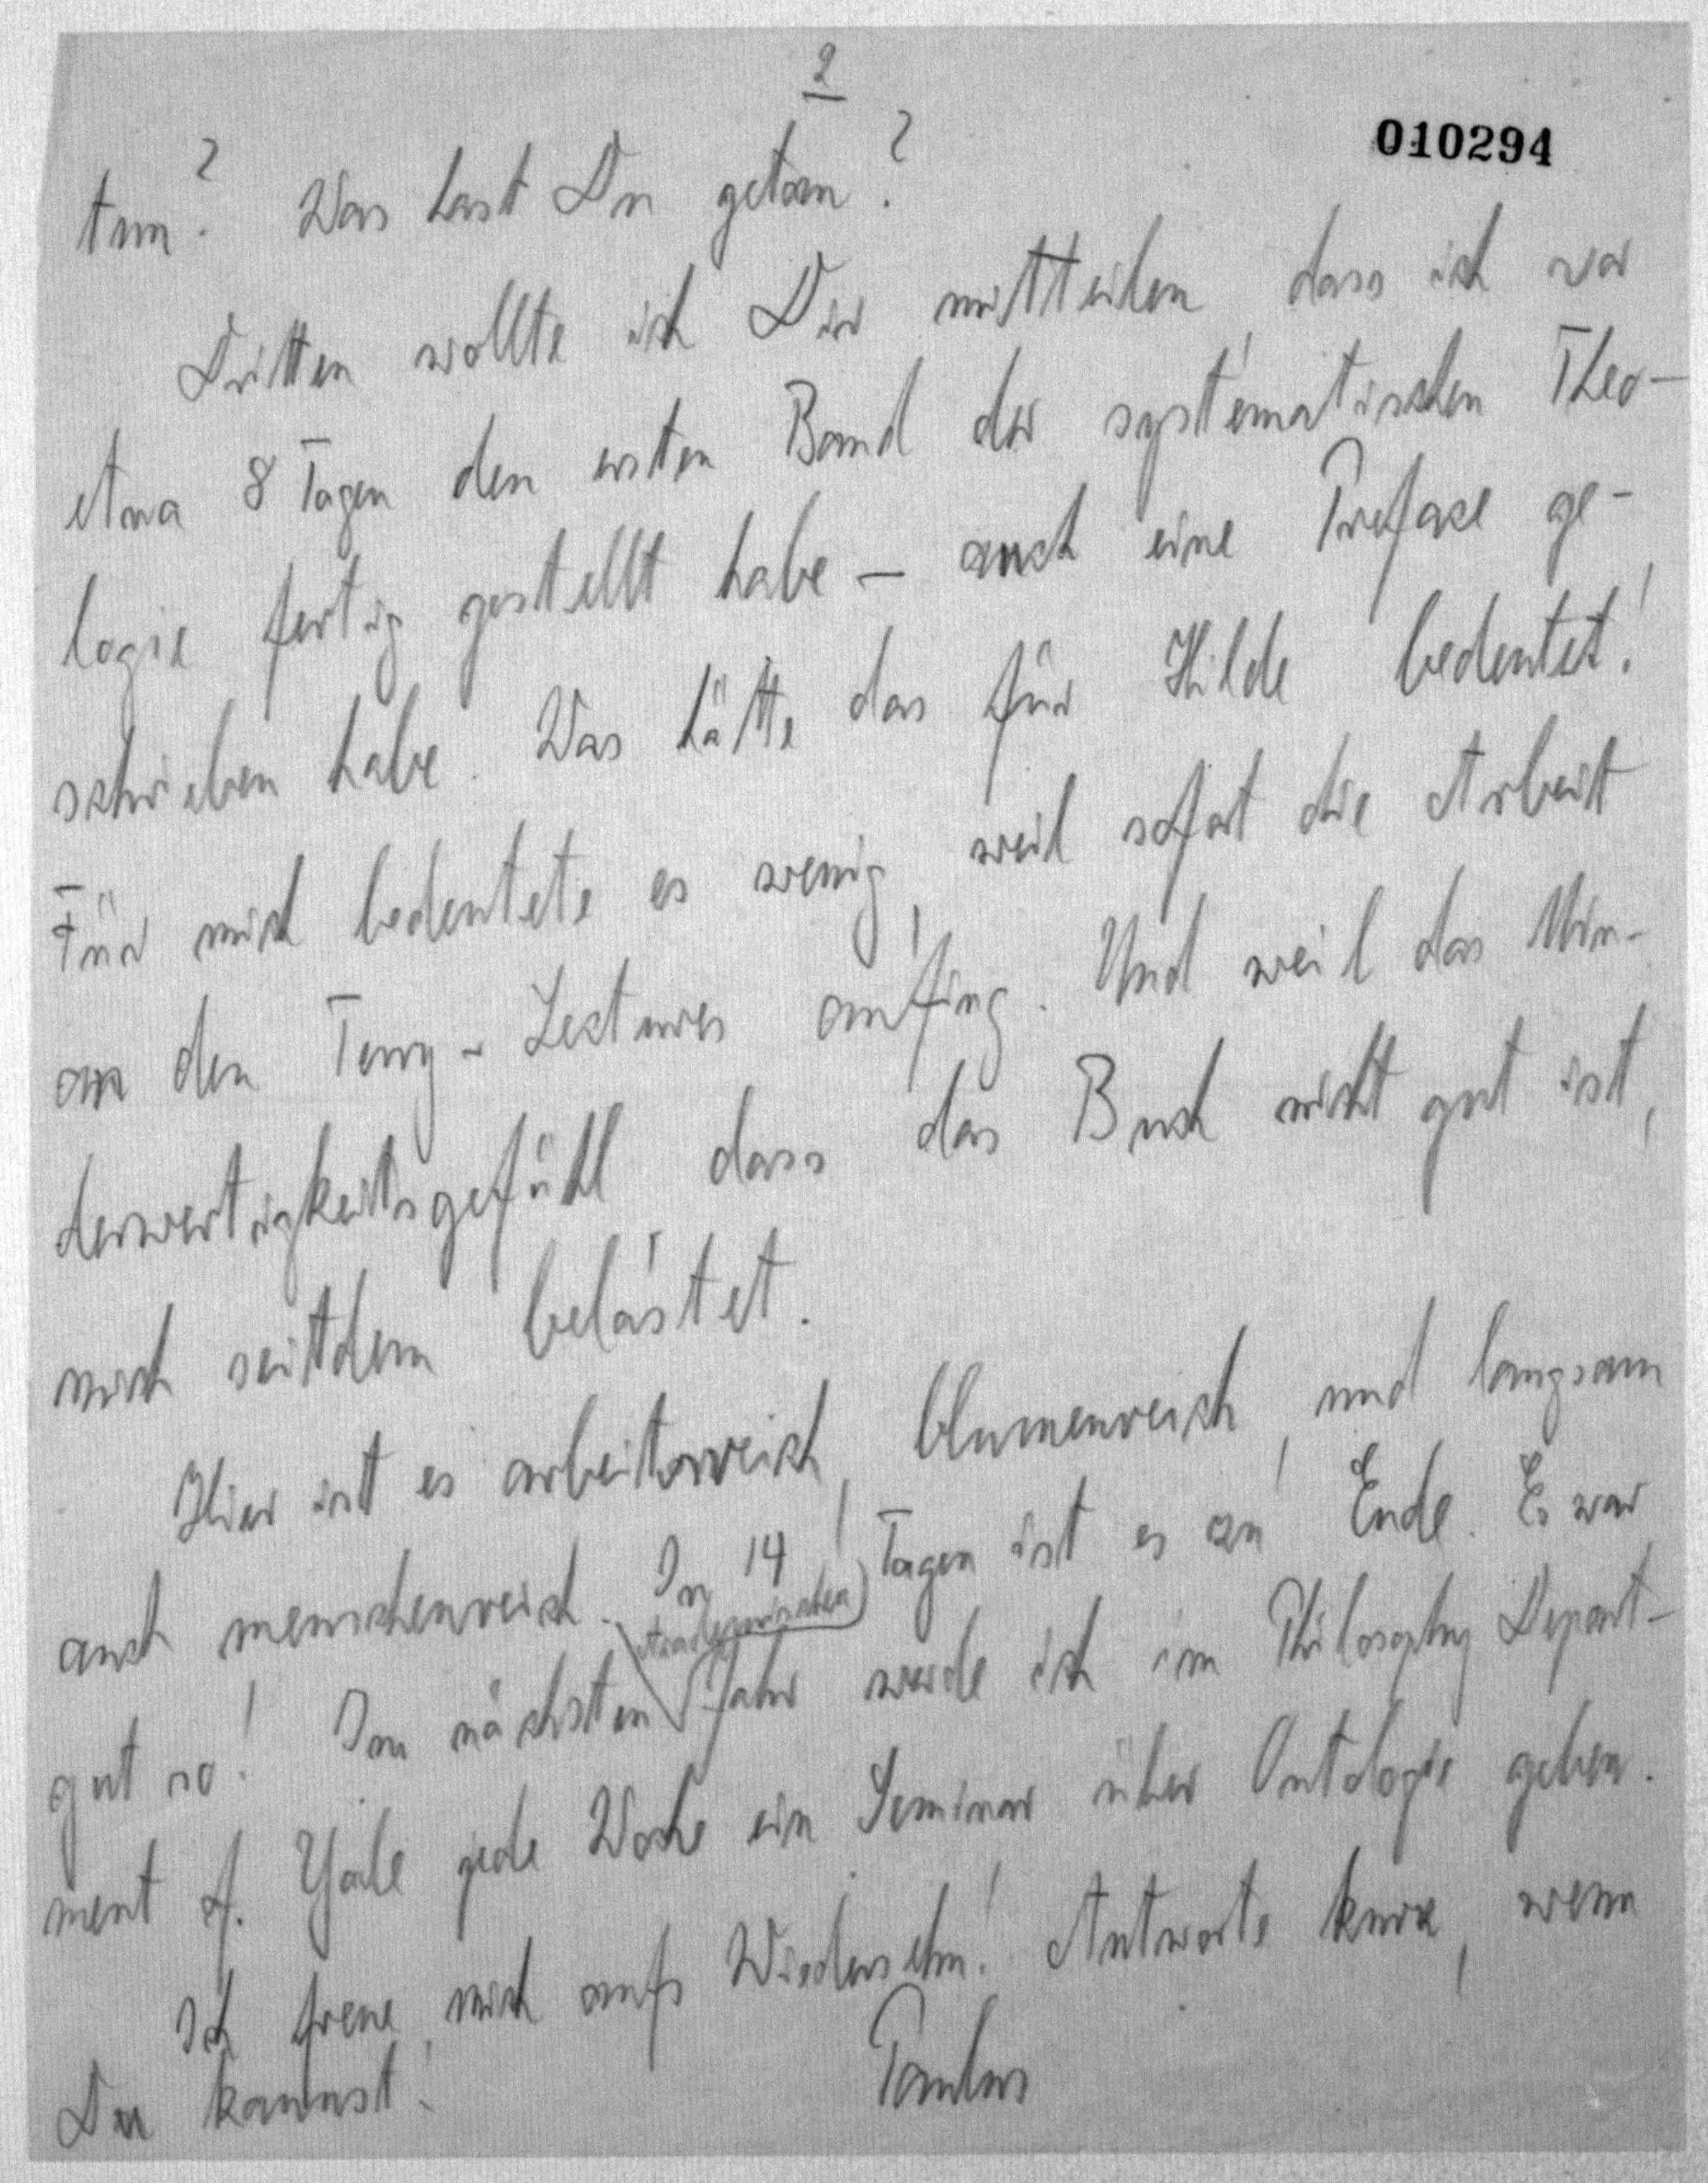 2
010294
tun? Was hast Du getan?
Dritten wollte ich Dir mitteilen, dass ich vor
etwa 8 Tagen den ersten Band der systematischen Theo-
logie fertig gestellt habe – auch eine Preface ge-
schrieben habe. Was hätte das für Hilde bedeutet!
Für mich bedeutete es wenig, weil sofort die Arbeit
an den Terry-Lectures anfing. Und weil das Min-
derwertigkeitsgefühl dass das Buch nicht gut ist,
mich seitdem belastet.
Hier ist es arbeitsreich, blumenreich, und langsam
auch menschenreich. In 14 Tagen ist es zu Ende. Es war
gut so! Im nächsten Akademischen Jahr werde ich im Philosophy Depart-
ment of. Yale jede Woche ein Seminar über Ontologie geben.
Ich freue mich aufs Wiedersehn! Antworte kurz, wenn
Du kannst!
Paulus